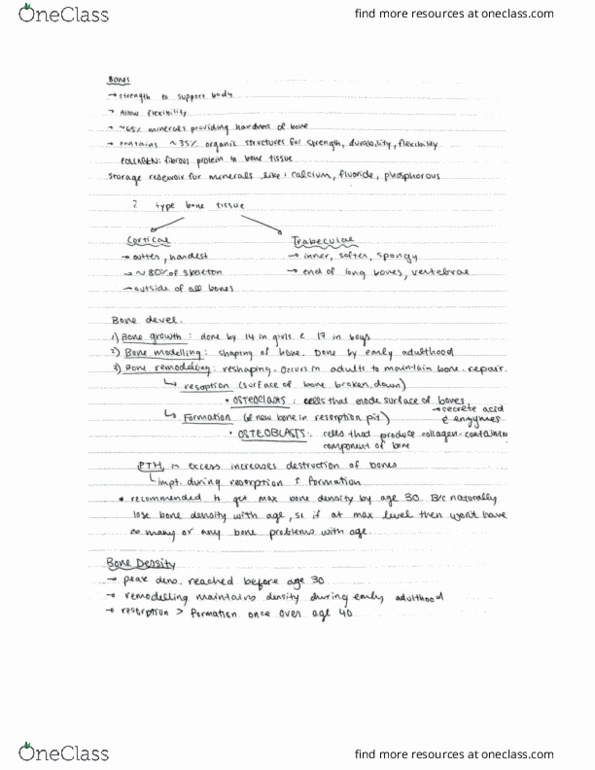 OneClass
find more resources at oneclass.com
Bones
→ strength to support body
→ Allow flexibility
→ ~65% minerals providing hardness of bone
→ contains ~35% organic structures for strength, durability, flexibility
COLLAGEN: fibrous protein in bone tissue
Storage reservoir for minerals like: calcium, fluoride, phosphorous
2 type bone tissue
Cortical
Trabecular
→ outter, hardest
→ inner, softer, spongy
→ ~80% of skeleton
→ end of long bones, vertebrae
→ outside of all bones
Bone devel.
1) Bone growth: done by 14 in girls & 17 in boys
2) Bone modelling: shaping of bone. Done by early adulthood
3) Bone remodeling: reshaping. Occurs in adults to maintain bone. repair.
↳ resoption (surface of bone broken down)
• OSTEOCLASTS: cells that erode surface of bones
→ secrete acid
& enzymes
↳ Formation (of new bone in resorption pit)
• OSTEOBLASTS: cells that produce collagen-containing
component of bone
PTH, in excess increases destruction of bones
↳ impt. during resorption & formation
• recommended to get max bone density by age 30. B/c naturally
lose bone density with age, so if at max level then won't have
as many or any bone problems with age.
Bone Density
→ peak dens. reached before age 30
→ remodelling maintains density during early adulthood
→ resorption > formation once over age 40
OneClass
find more resources at oneclass.com